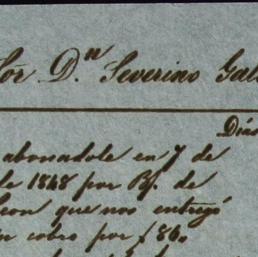 Sor Dn Severino Gal
Dias
abonadole en 7 de
de 1848 por Rj. de
que nos entregó
cobro por £86.